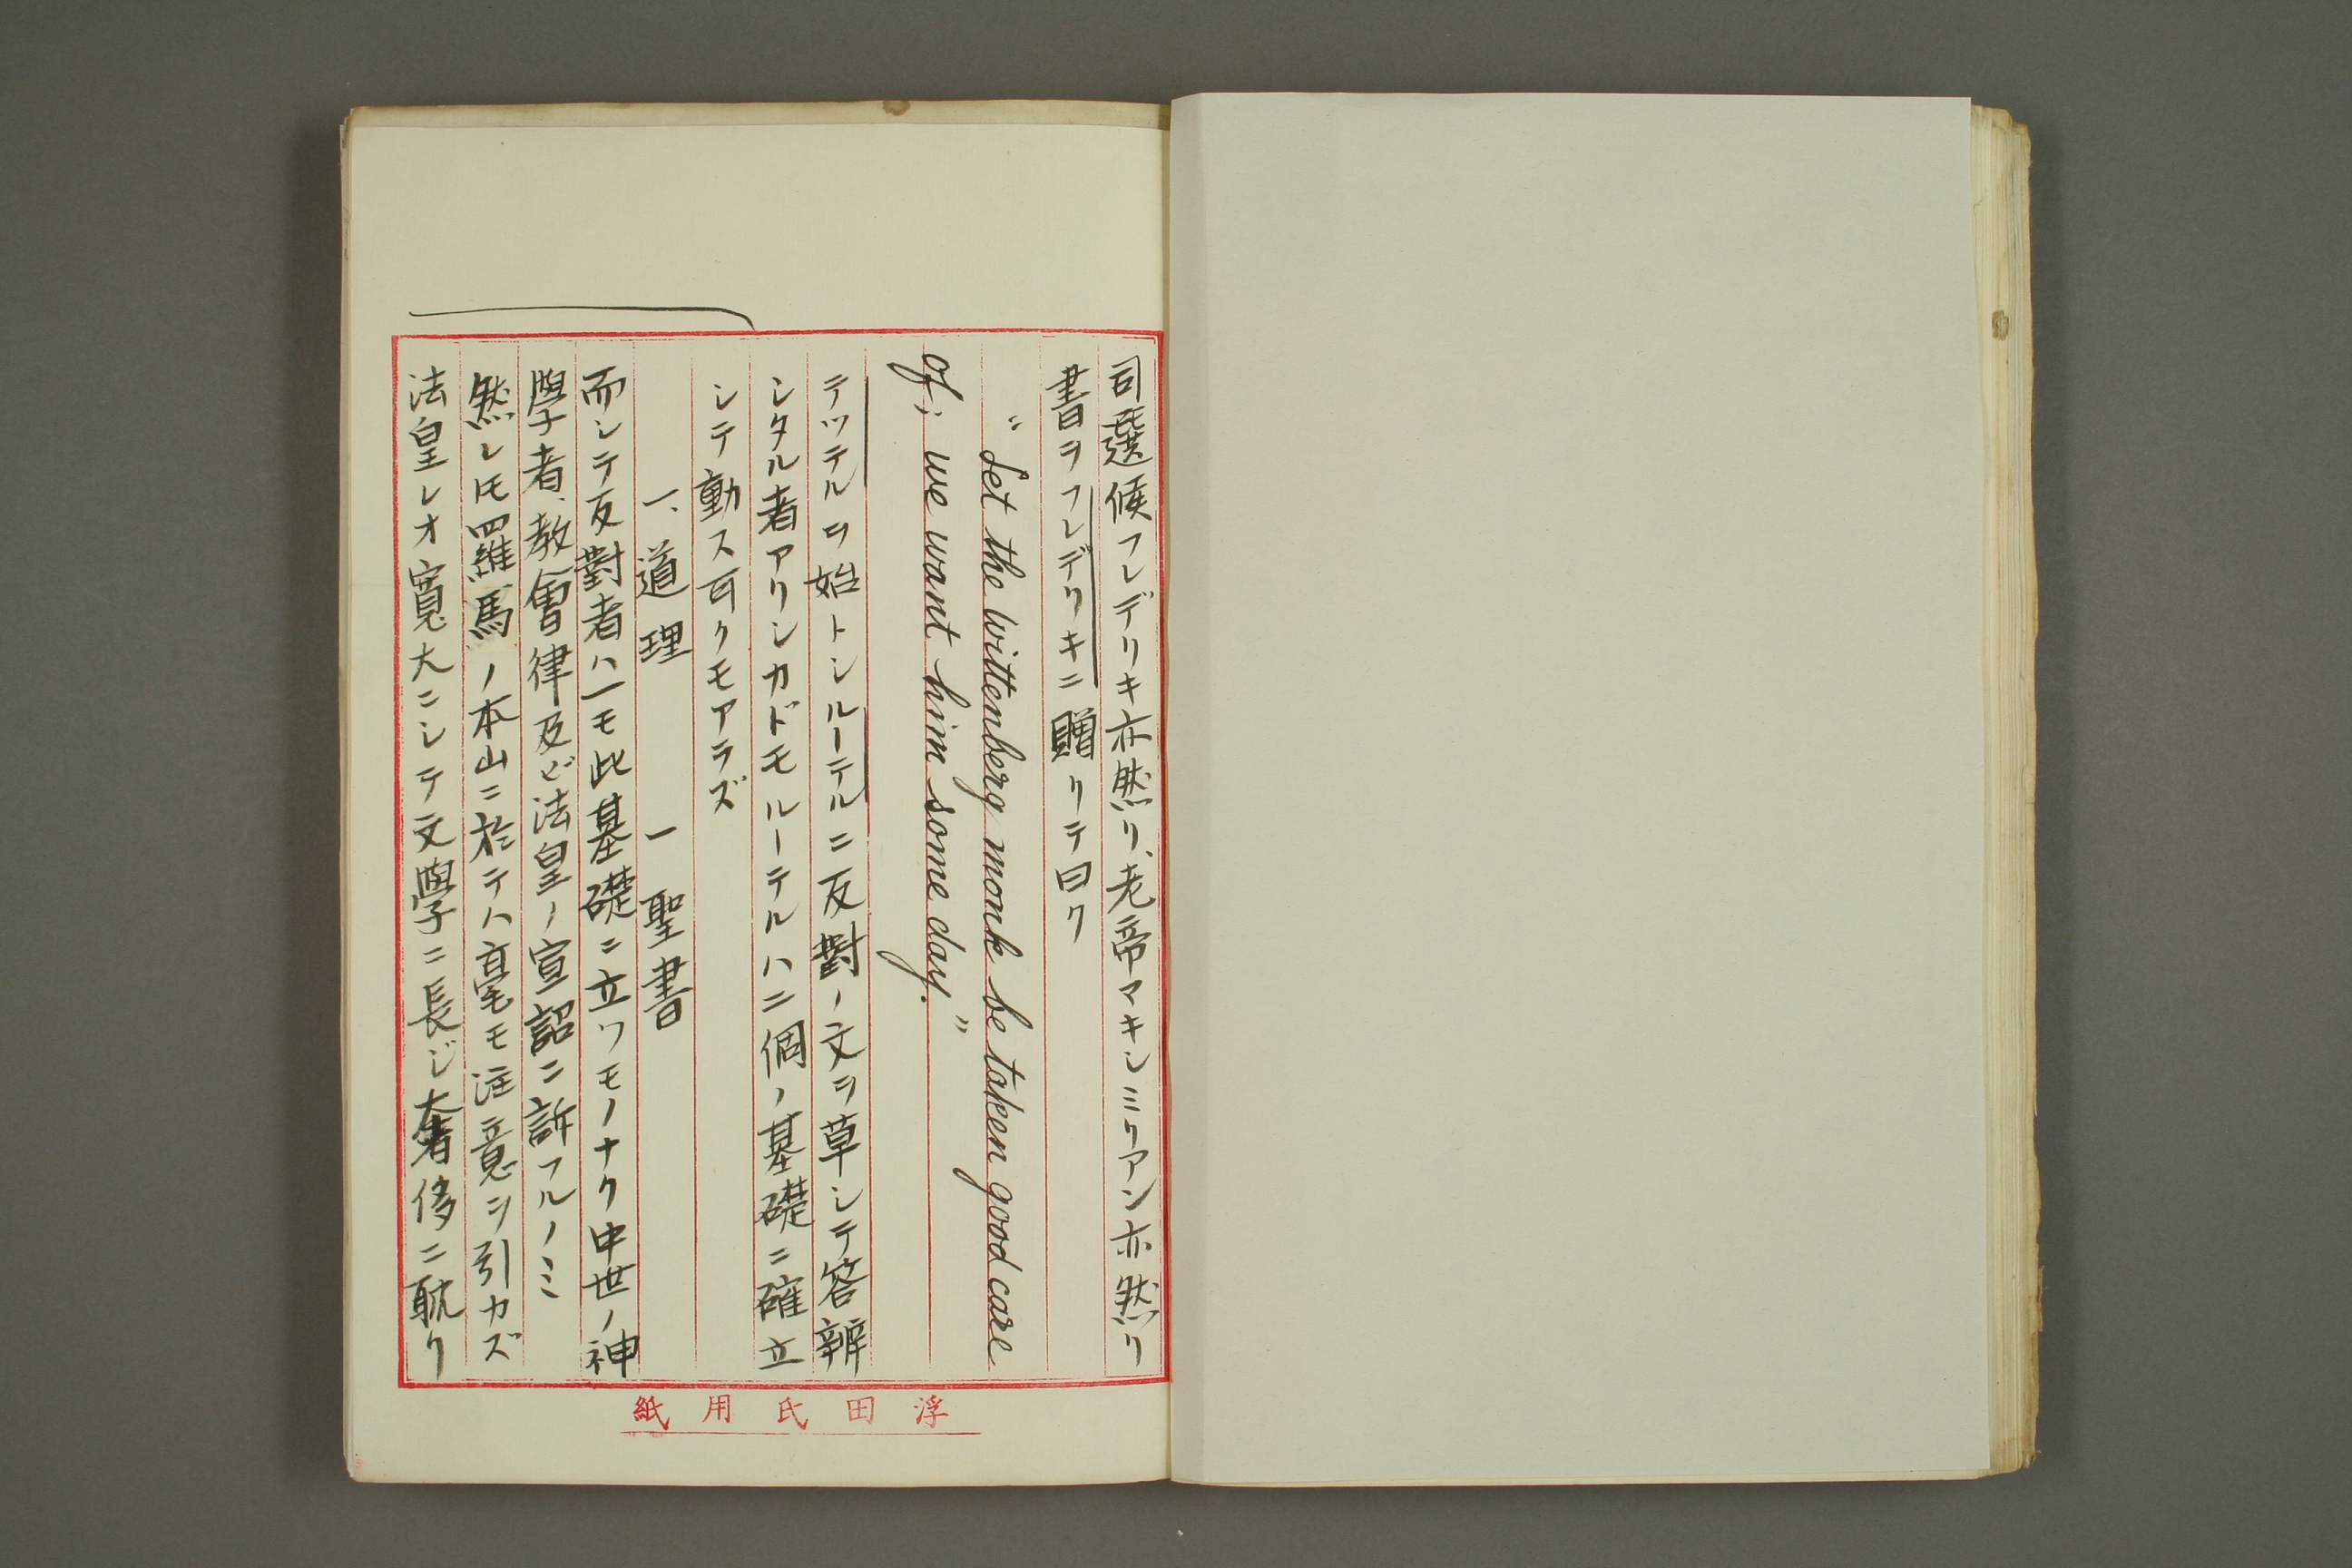 司選候フレデリキ亦然リ、老帝マキシミリアン亦然リ
書ヲフレデリキニ贈リテ曰ク
"Let the Wittenberg monk be taken good care
of; we want him some day."
テッテルヲ始トシルーテルニ反對ノ文ヲ草シテ答辨
シタル者アリシカドモルーテルハ二個ノ基礎ニ確立
シテ動ス可クモアラズ
一、道理　一　聖書
而シテ反對者ハ一モ此基礎ニ立ツモノナク中世ノ神
學者、教會律及ビ法皇ノ宣詔ニ訴フルノミ
然レ𪜈羅馬ノ本山ニ於テハ毫モ注意ヲ引カズ
法皇レオ寛大ニシテ文學ニ長ジ奢侈ニ耽リ
浮田氏用紙